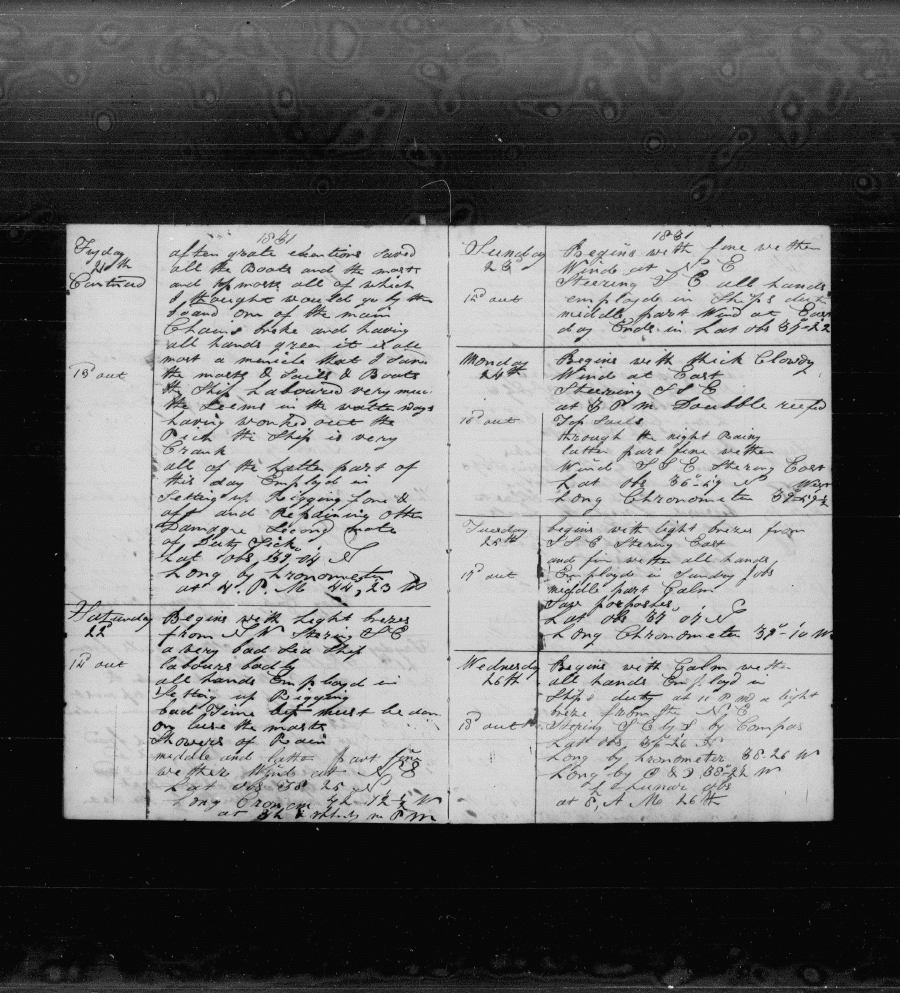 1831
Fryday
21th
Contnued
after grate exertions Saved
all the Boats and the masts
and top masts all of which
I thought would go by the
board one of the main
Chains broke and having
all hands green it is all
most a miricle that I Saved
13d out
the masts & Sails & Boats
the Ship Laboured very muc
the Seems in the watter ways
having worked out the
Pitch the Ship is very
Crank
all of the Latter part of
this day Employd in
Setting up Rigging fore &
aft and Repairing other
Damage Second mate
of Duty Sick
Lat obs 39,04 N
Long by Cronometer
at 4. P. M 44,23 W
Saturday
22
Begins with Light brezes
from N W Stering S E
a very bad Sea Ship
14d out
labours badly
all hands Employd in
Setting up Rigging
bad Time but must be don
or lose the masts
Showers of Rain
middle and latter part fine
wether Wind at N E
Lat obs 38 25 N
Long Cronom 42 12 1/2 W
at in P M
1831
Sunday
23
Begins with fine wether
Wind at N E
Steering S E all hands
15d out
employd in Ships duty
middle part Wind at East
day Ends in Lat obs 37-22
Monday
24th
Begins with thick Clowdy
Wind at East
Steering S S E
at 3 P m Doubble reefed
16d out
Top Sails
through the night Rainy
latter part fine wether
Wind S S E Stering East
Lat obs 36-59 N West
Long Chronometer 39-59 1/2
Tuesday
25th
begins with light brezes from
S S E Stering East
and fin wether all hands
17d out
Employd in Sundry Jobs
middle part Calm
Saw porposhes
Lat obs 37 07 N
Long Chronometer 39-10 W
Wednesday
26th
Begins with Calm wether
all hands Employd in
Ships duty at 11 P m a light
breze from the N E
18d out
Stering S E by S by Compas
Lat obs 36-26 N
Long by Cronometer 38-26 W
Long by 38-22 W
Lunar obs
at 8, A M 26th